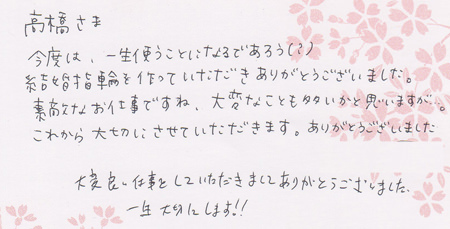 高橋さま
今度は、一生使うことになるであろう(?)
結婚指輪を作っていただきありがとうございました。
素敵なお仕事ですね、大変なことも多いかと思いますが。
これから大切にさせていただきます。ありがとうございました
大変良い仕事をしていただきましてありがとうございました。
一生大切にします!!